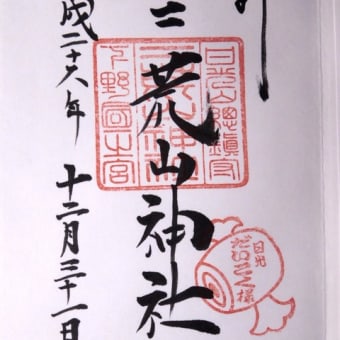 二荒山神社
日光山總鎮守
下野國一之宮
日光
だいこく様
成二十六年
十二月三十一日